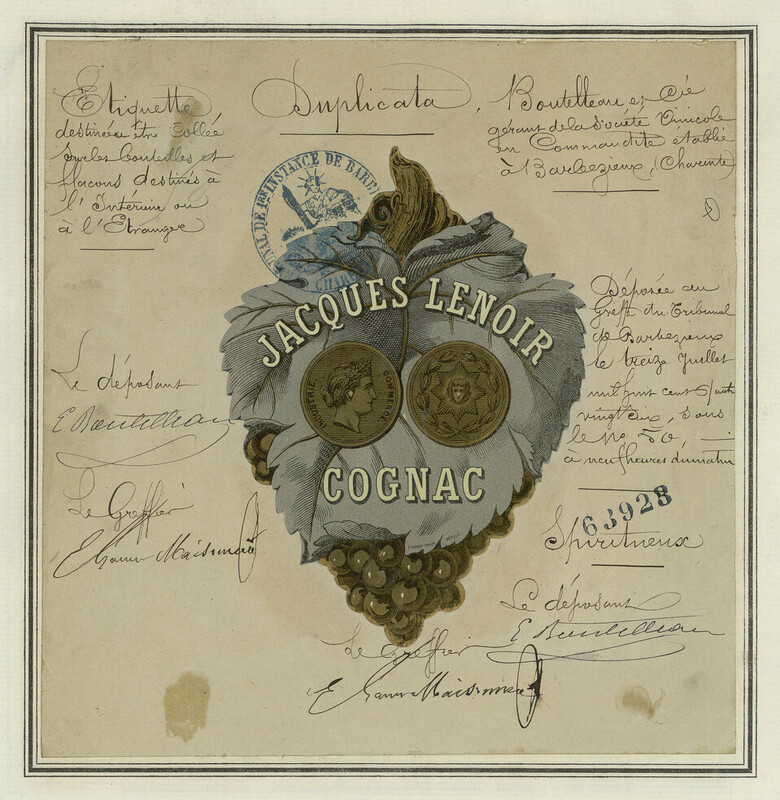 Duplicata,
Etiquette
destinée à être collée
sur les bouteilles et
flacons destinés à
l'Intérieur ou
à l'Etranger
Boutelleau et Cie
gérant de la Société Vinicole
en Commandite établie
à Barbezieux, (Charente)
TRIBUNAL DE 1ERE INSTANCE DE BARB
CHAR
JACQUES LENOIR
INDUSTRIE
COMMERCE
COGNAC
Déposée au
Greffe du Tribunal
de Barbezieux
le treize Juillet
mil huit cent quatre
vingt six, sous
le No 50,
à neuf heures du matin
63928
Spiritueux
Le déposant
E Boutelleau
Le Greffier
Le déposant
E Boutelleau
Le Greffier